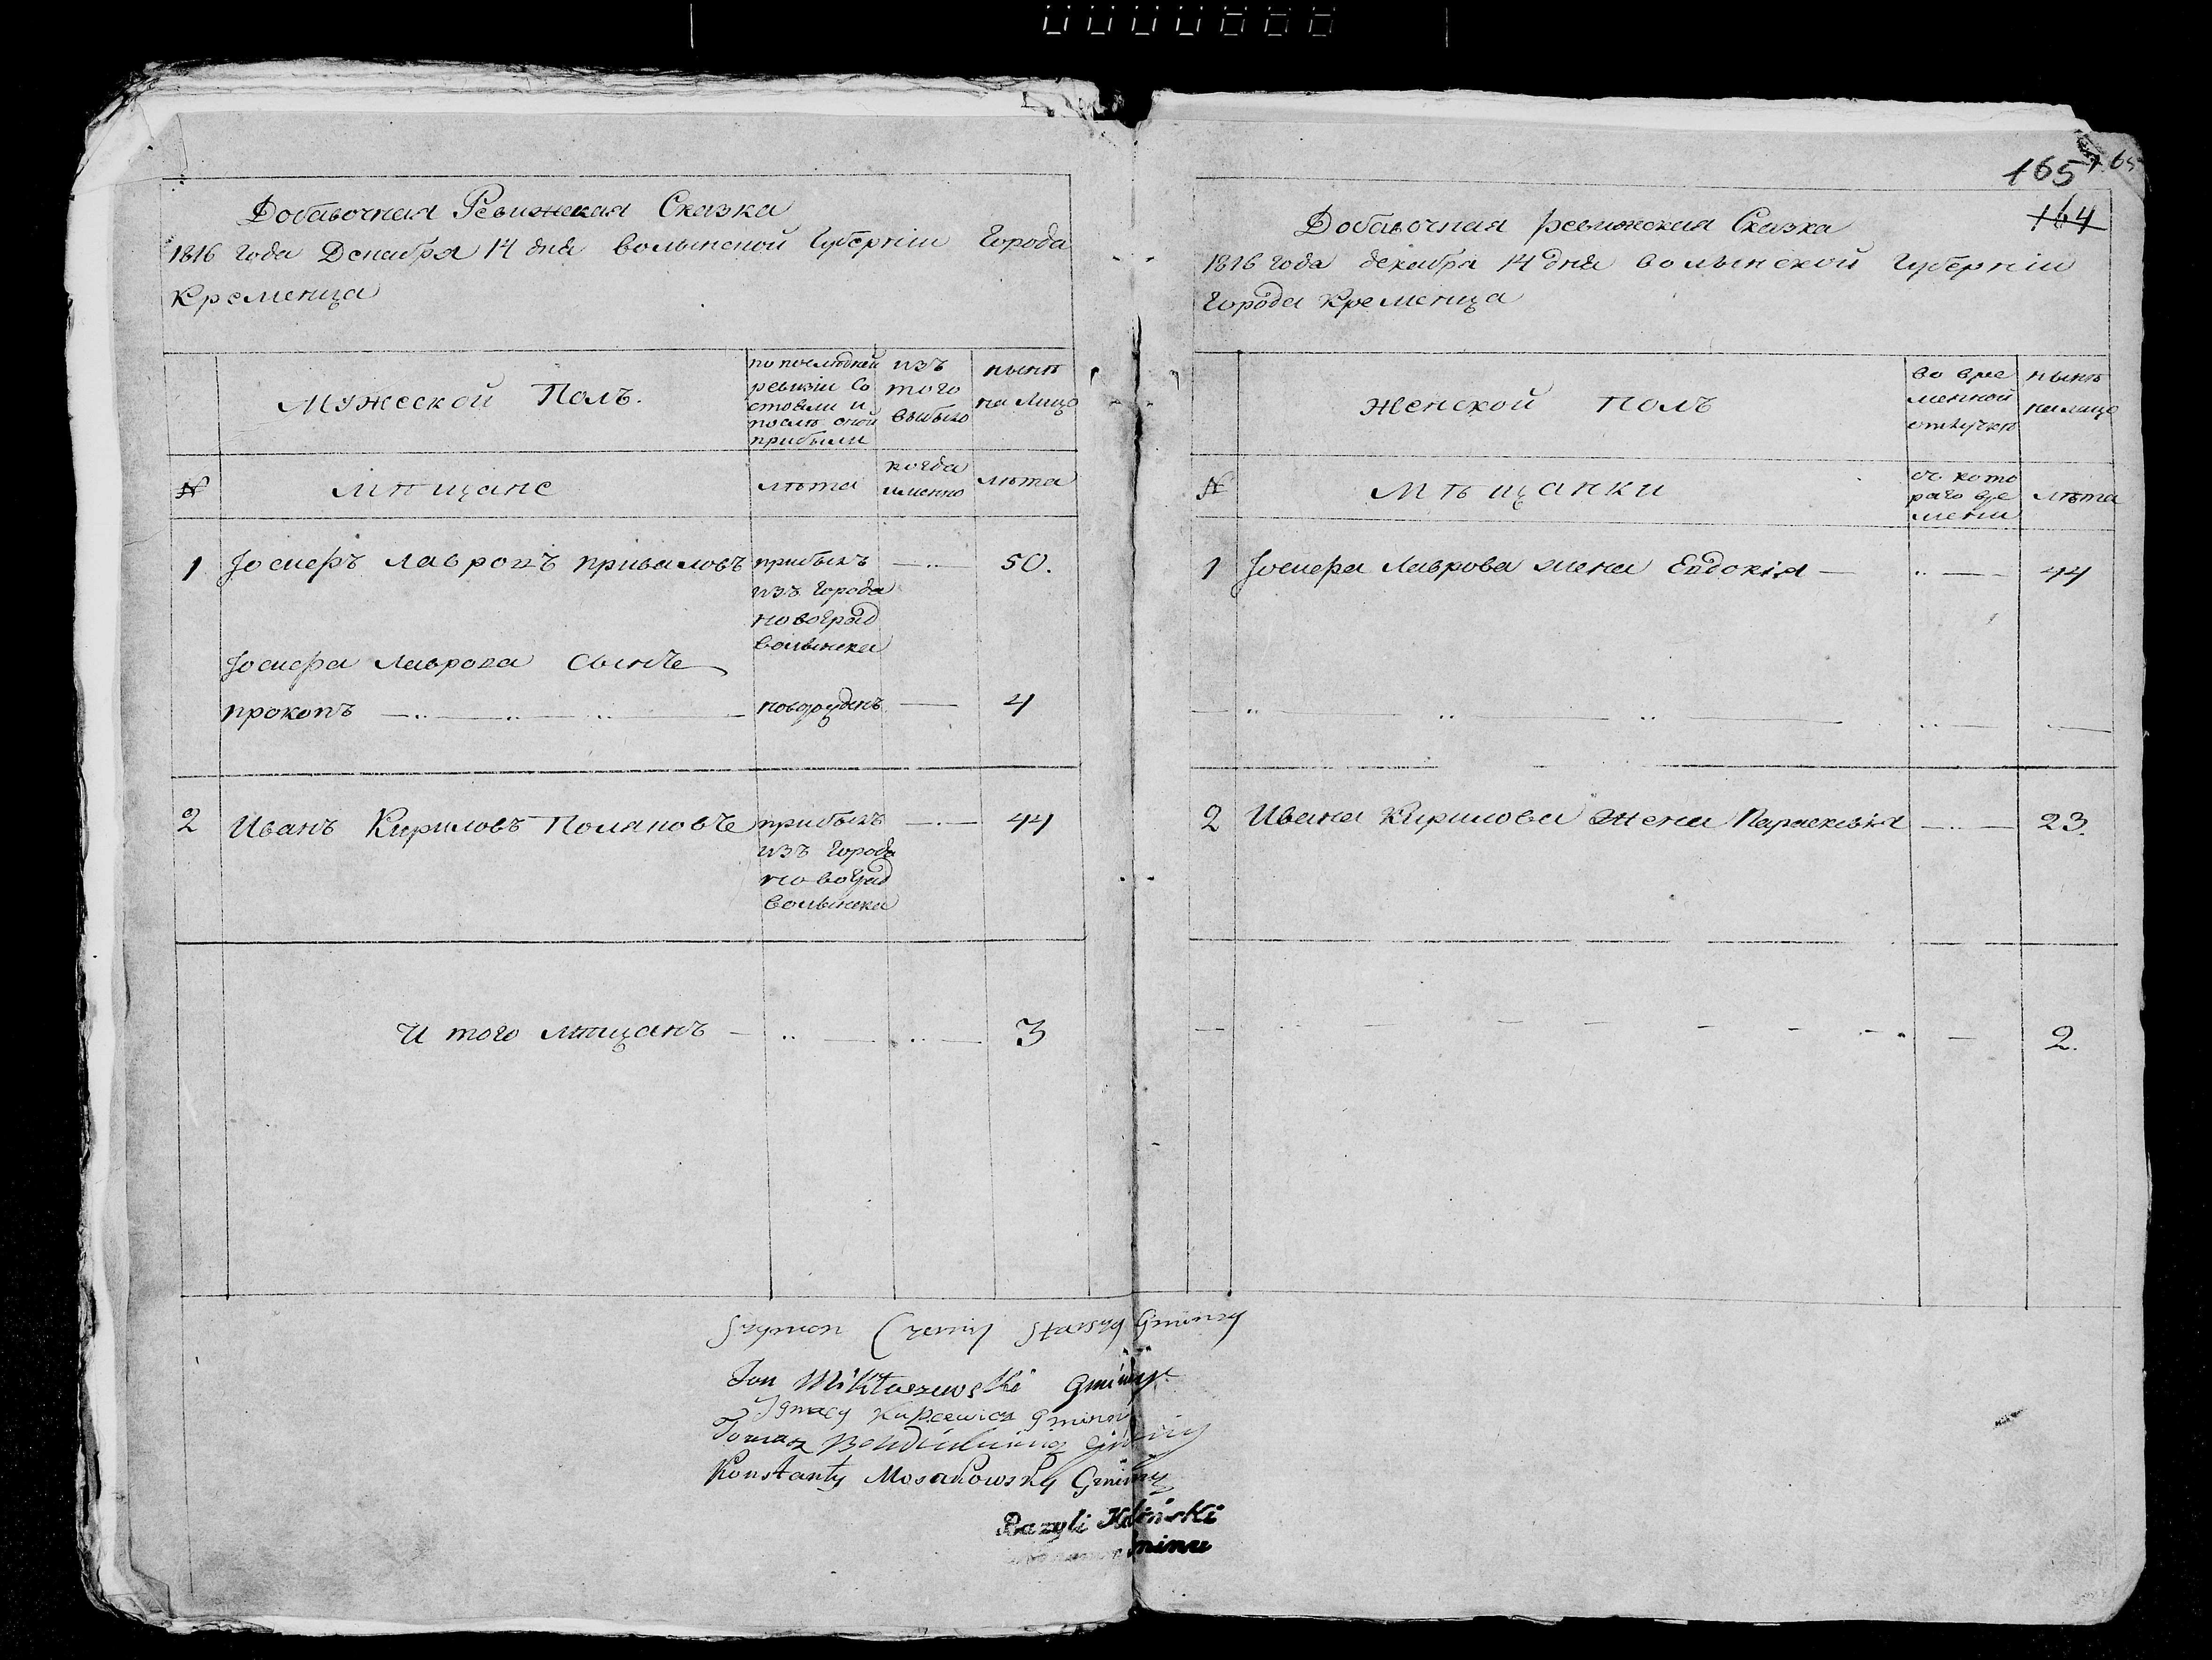 165
164
Добавочная Ревижская Сказка
1816 года Декабря 14 дня Волынской Губерніи Города
Кременца
Мужеской Полъ.
по последней
ревизіи со
стояли и
послѣ оной
прибыли
изъ
того
выбыло
нынѣ
на лицо
№
мѣщане
лѣта
когда
именно
лѣта
1 Іосифъ Лавровъ Приваловъ прибылъ —..— 50.
изъ города
Новоград
волынска
Іосифа Лаврова сынъ
прокопъ —..—..—..— новорожденъ — 4
2 Иванъ Кириловъ Поляновъ прибылъ —..— 44
изъ города
новоград
волынска
И того мѣщанъ — .. — .. — 3
Добавочная ревижская Сказка
1816 года декабря 14 дня волынской Губерніи
Города Кременца
Женской полъ
во вре
менной
отлучкѣ
нынѣ
на лицо
№
Мѣщанки
съ кото
раго вре
мени
лѣта
1 Іосифа Лаврова жена Евдокія — .. — 44
2 Ивана Кирилова жена Параскевія —..— 23.
2.
Szymon Czerny Starszy Gminny
Jan Mikłaszewski Gminny
Ignacy Gminny
Tomasz Gminny
Konstanty Mosakowsky Gminny
Bazyli